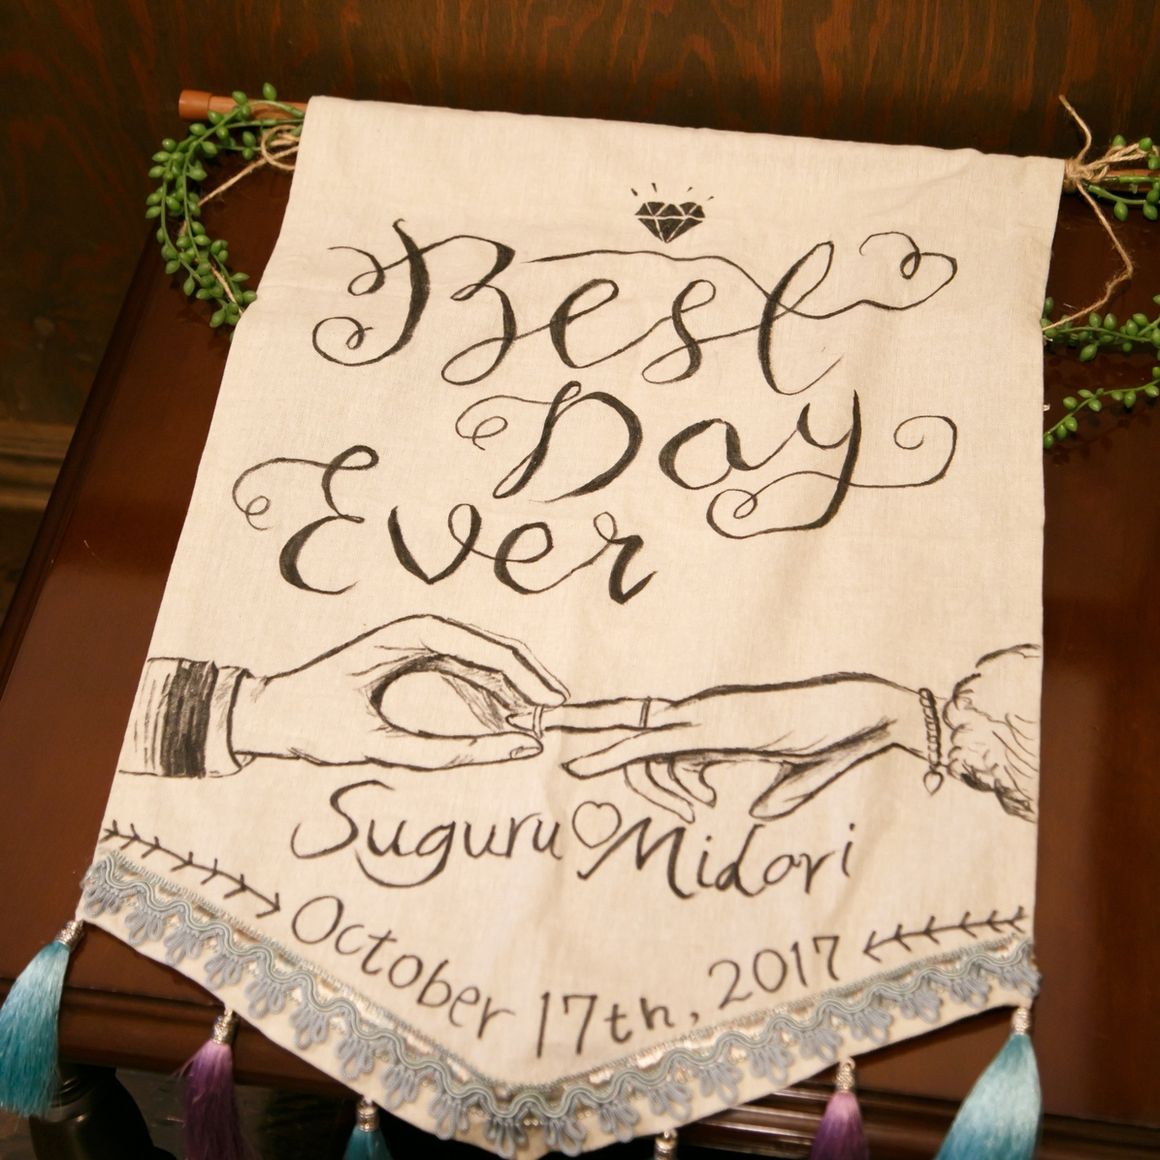 Best
Day
Ever
Suguru♡Midori
October 17th, 2017